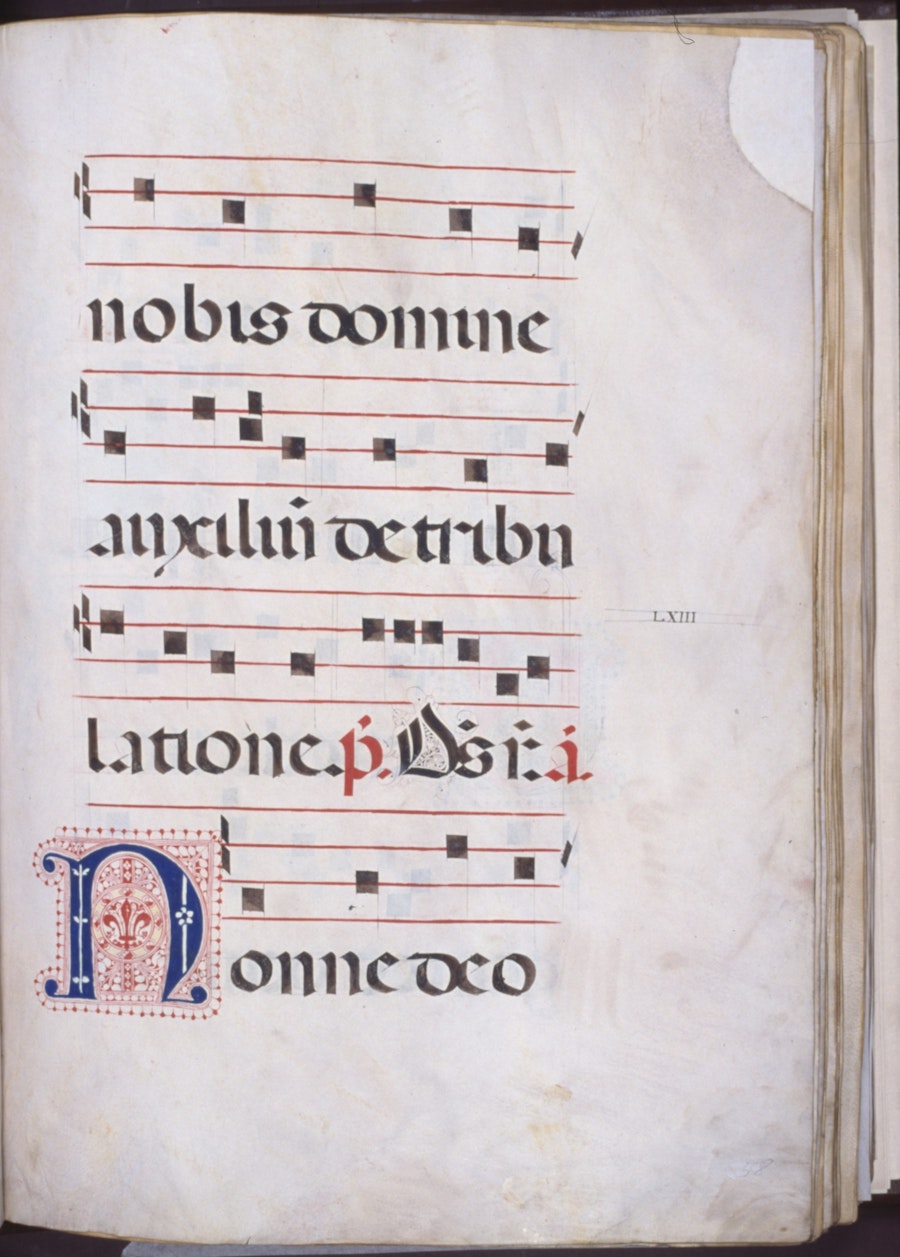 nobis domine
auxiliū de tribu
LXIII
latione. p̄. Ds̄ r̄. ā.
Nonne deo